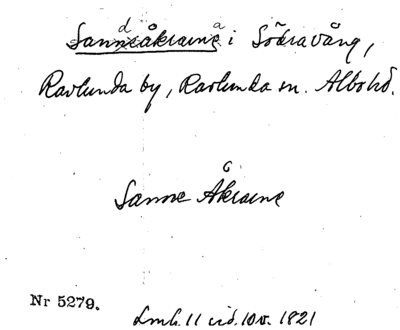 Sandåkrarna i Södravång,
Ravlunda by, Ravlunda sn. Albo hd.
Sanne Åkrarne
Nr 5279.
Lmh. 11 vid. 10 v. 1821